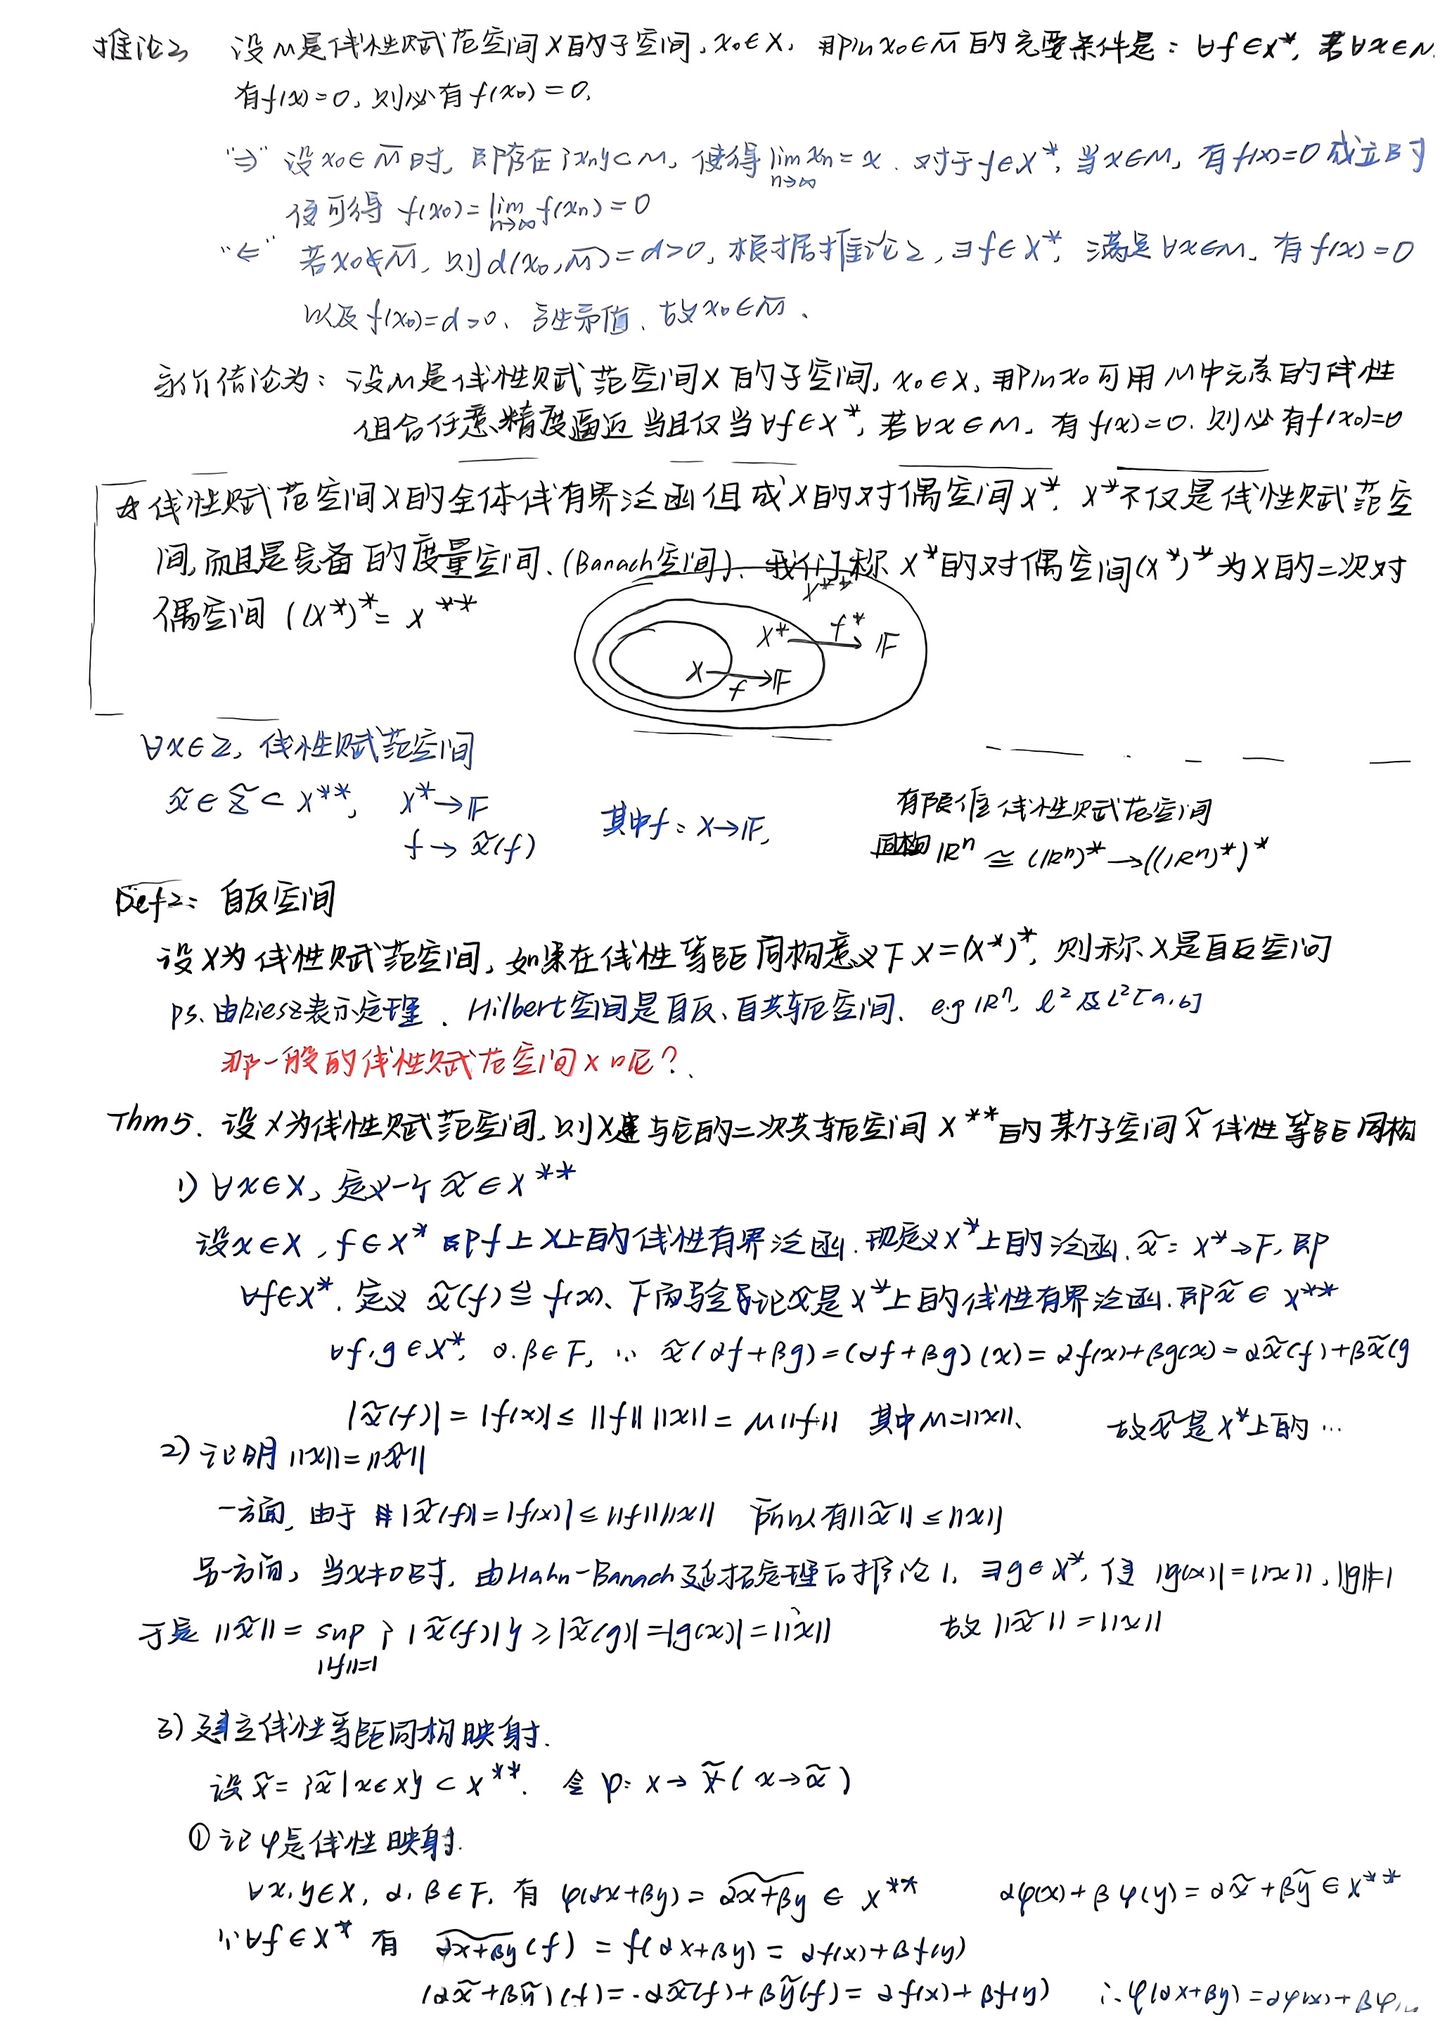 推论3 设M是线性赋范空间X的子空间，x₀∈X，那么x₀∈M̅的充要条件是：∀f∈X*，若∀x∈M.
有f(x)=0，则必有f(x₀)=0.
"⇒" 设x₀∈M̅时，即存在{xₙ}⊂M，使得lim_{n→∞} xₙ=x. 对于f∈X*，当x∈M，有f(x)=0成立时
便可得 f(x₀)=lim_{n→∞} f(xₙ)=0
"⇐" 若x₀∉M̅，则d(x₀,M̅)=d>0，根据推论2，∃f∈X*，满足∀x∈M，有f(x)=0
以及f(x₀)=d>0、产生矛盾、故x₀∈M̅.
等价结论为：设M是线性赋范空间X的子空间，x₀∈X，那么x₀可用M中元素的线性
组合任意精度逼近当且仅当∀f∈X*，若∀x∈M，有f(x)=0. 则必有f(x₀)=0
☆线性赋范空间X的全体线有界泛函组成X的对偶空间X*. X*不仅是线性赋范空
间，而且是完备的度量空间、(Banach空间)、我们称X*的对偶空间(X*)*为X的二次对
偶空间 ((X*)*=X**
X**
X* f* → F
X f → F
∀x∈Z，线性赋范空间
x̃∈Z̃⊂X**， X*→F
f→x̃(f)
其中f：X→F，
有限维线性赋范空间
同构 ℝⁿ ≅ (ℝⁿ)*→((ℝⁿ)*)*
Def2：自反空间
设X为线性赋范空间，如果在线性等距同构意义下X=(X*)*，则称X是自反空间
ps. 由Riesz表示定理．Hilbert空间是自反、自共轭空间．e.g ℝⁿ，l² 及L²[a,b]
那一般的线性赋范空间X呢？
Thm5. 设X为线性赋范空间，则X与它的二次共轭空间X**的某个子空间X̃线性等距同构
1) ∀x∈X，定义一个x̃∈X**
设x∈X，f∈X* 即f上X上的线性有界泛函. 现定义X*上的泛函. x̃：X*→F，即
∀f∈X*. 定义 x̃(f)≜f(x)、下面验证x̃是X*上的线性有界泛函. 即x̃∈X**
∀f,g∈X*，α,β∈F，∵ x̃(αf+βg)=(αf+βg)(x)=αf(x)+βg(x)=αx̃(f)+βx̃(g
|x̃(f)|=|f(x)|≤||f|| ||x||=M||f|| 其中M=||x||、 故x̃是X*上的…
2) 证明||x||=||x̃||
一方面，由于|x̃(f)|=|f(x)|≤||f||||x|| 所以有||x̃||≤||x||
另一方面，当x≠0时，由Hahn-Banach延拓定理的推论1，∃g∈X*，使|g(x)|=||x||，||g||=1
于是||x̃||=sup_{||f||=1}{|x̃(f)|}≥|x̃(g)|=|g(x)|=||x|| 故||x̃||=||x||
3) 建立线性等距同构映射.
设X̃={x̃|x∈X}⊂X**. 令φ：X→X̃(x→x̃)
① 证φ是线性映射.
∀x,y∈X，α,β∈F，有 φ(αx+βy)=\widetilde{αx+βy}∈X** αφ(x)+βφ(y)=αx̃+βỹ∈X**
∵∀f∈X* 有 \widetilde{αx+βy}(f)=f(αx+βy)=αf(x)+βf(y)
(αx̃+βỹ)(f)=αx̃(f)+βỹ(f)=αf(x)+βf(y) ∴φ(αx+βy)=αφ(x)+βφ(